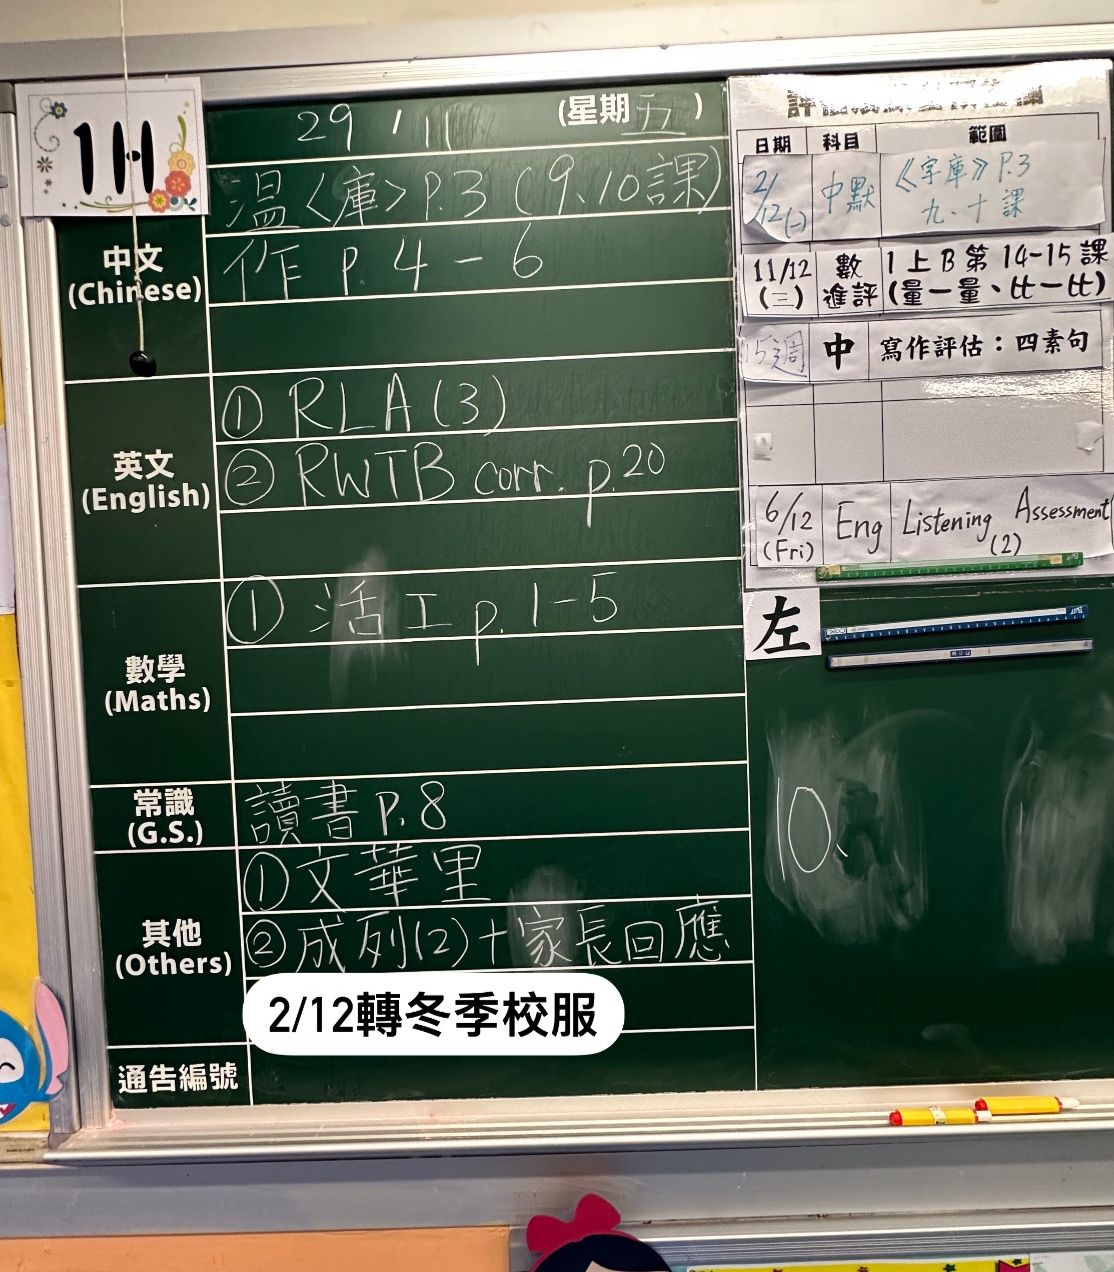 1H
29 / 11 (星期五)
中文
(Chinese)
溫〈庫〉P.3 (9、10課)
作 P. 4 - 6
英文
(English)
① RLA (3)
② RWTB corr. p.20
數學
(Maths)
① 活工 p. 1-5
常識
(G.S.)
讀書 P.8
其他
(Others)
① 文華里
② 成列(2)+家長回應
2/12轉冬季校服
通告編號
日期 科目 範圍
2/12(一) 中默 《字庫》P.3 九、十課
11/12 (三) 數進評 1上B第14-15課 (量一量、比一比)
15週 中 寫作評估：四素句
6/12 (Fri) Eng Listening Assessment (2)
左
10、